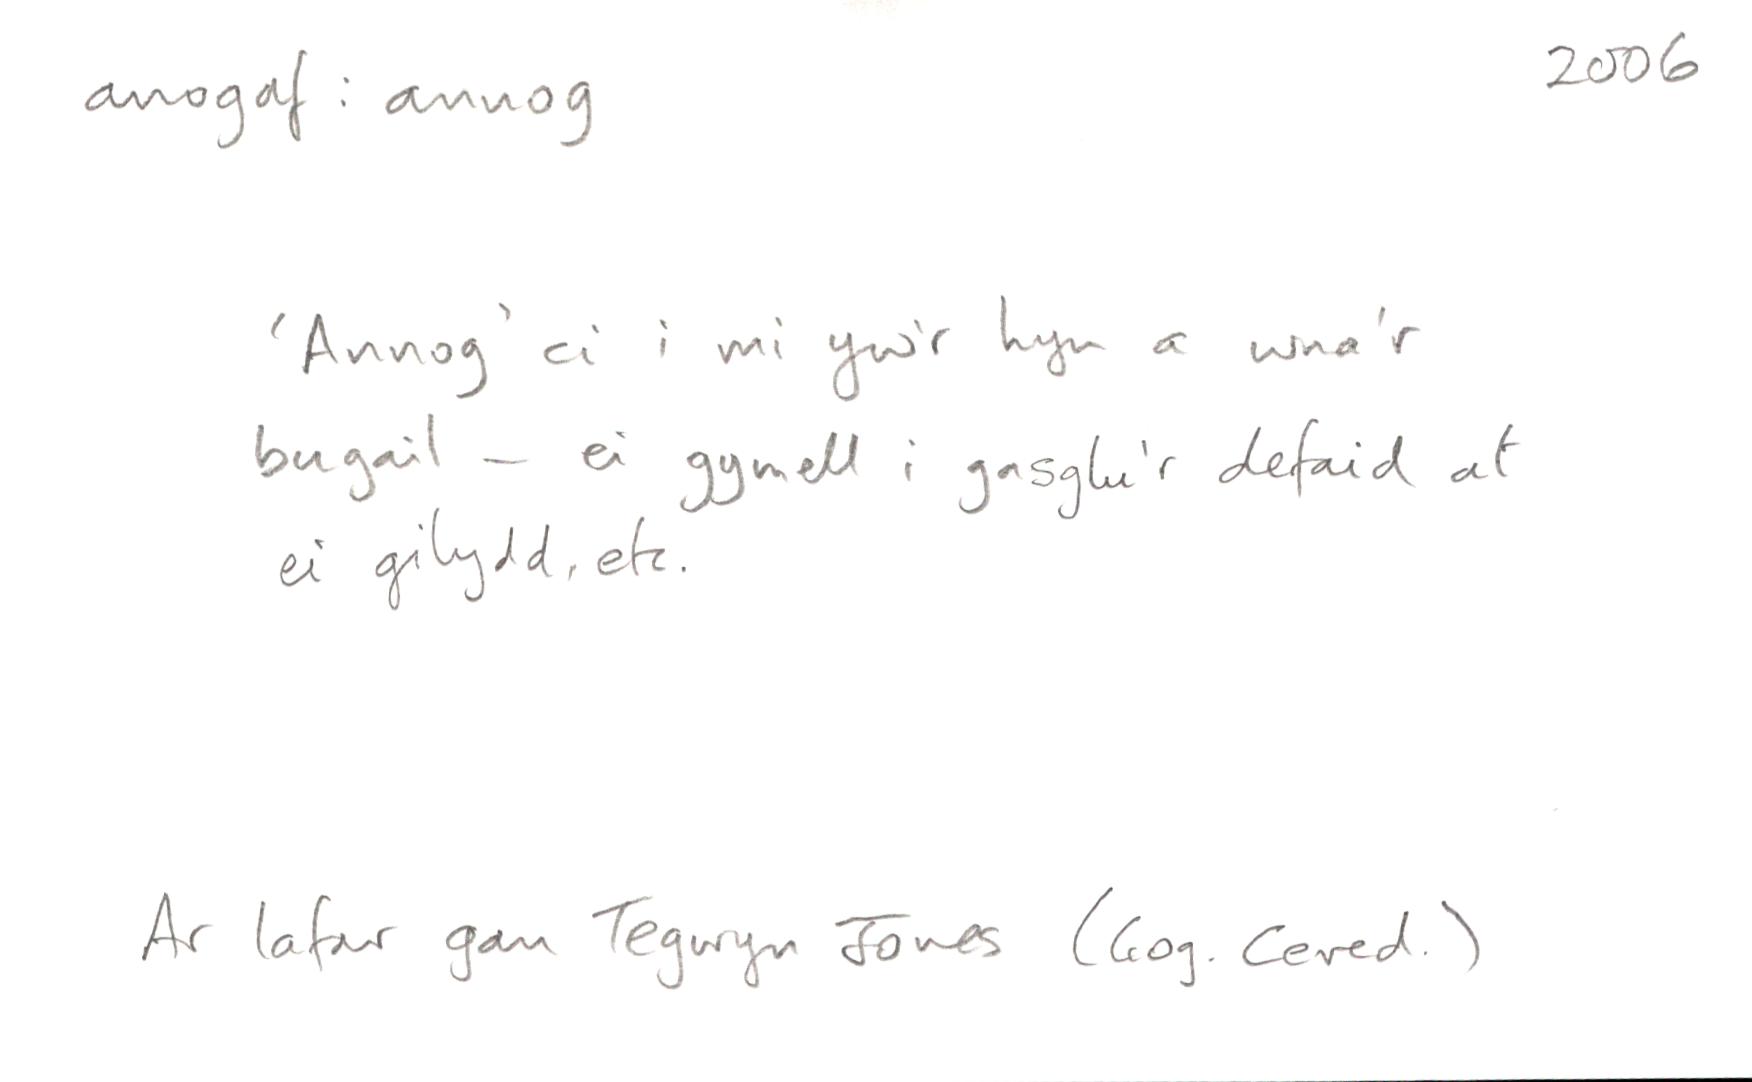 anogaf : annog
2006
'Annog' ci i mi yw'r hyn a wna'r
bugail – ei gymell i gasglu'r defaid at
ei gilydd, etc.
Ar lafar gan Tegwyn Jones (Gog. Cered.)